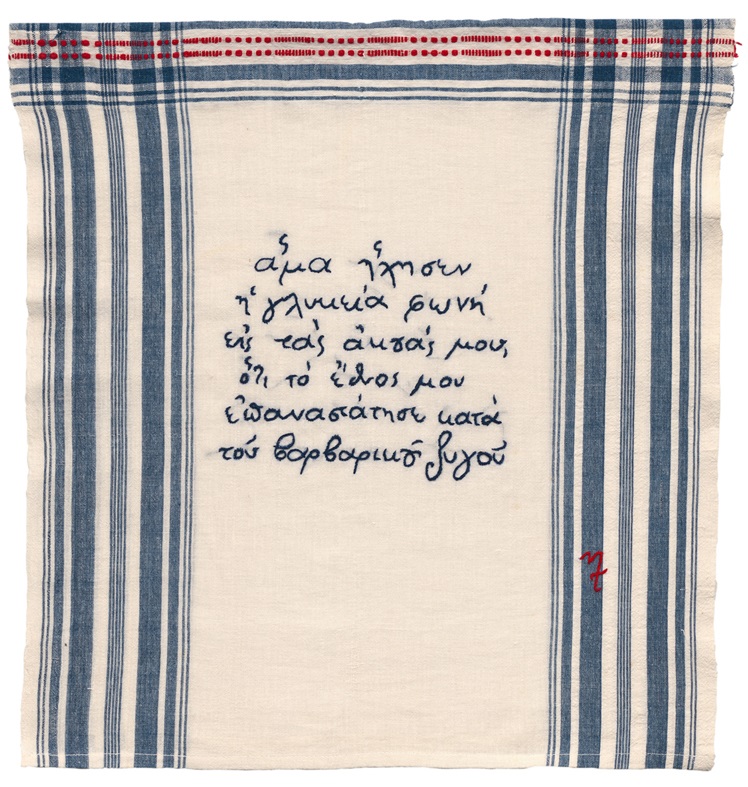 ἅμα ἤχησεν
ἡ γλυκεία φωνή
εἰς τὰς ἀκοάς μου,
ὅτι τό ἔθνος μου
ἐπαναστάτησε κατά
τοῦ βαρβαρικοῦ ζυγοῦ